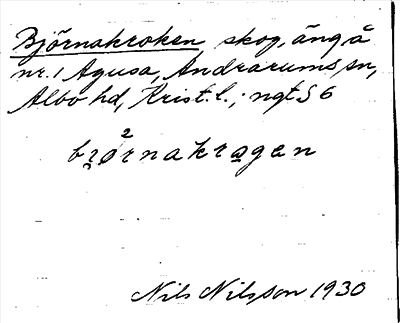 Björnakroken, skog, äng å
nr. 1 Agusa, Andrarums sn,
Albo hd, Krist. l.; nqt S 6
br̥ø²rnakrågen
Nils Nilsson 1930